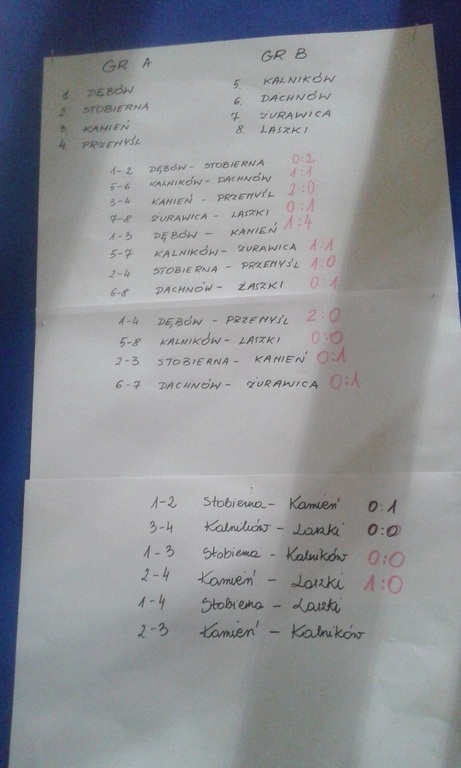 GR A
1. DĘBÓW
2. STOBIERNA
3. KAMIEŃ
4. PRZEMYŚL
GR B
5. KALNIKÓW
6. DACHNÓW
7. ŻURAWICA
8. LASZKI
1-2 DĘBÓW - STOBIERNA 0:2
5-6 KALNIKÓW - DACHNÓW 1:1
3-4 KAMIEŃ - PRZEMYŚL 2:0
7-8 ŻURAWICA - LASZKI 0:1
1-3 DĘBÓW - KAMIEŃ 1:4
5-7 KALNIKÓW - ŻURAWICA 1:1
2-4 STOBIERNA - PRZEMYŚL 1:0
6-8 DACHNÓW - ŁASZKI 0:1
1-4 DĘBÓW - PRZEMYŚL 2:0
5-8 KALNIKÓW - LASZKI 0:0
2-3 STOBIERNA - KAMIEŃ 0:1
6-7 DACHNÓW - ŻURAWICA 0:1
1-2 Stobierna - Kamień 0:1
3-4 Kalników - Laszki 0:0
1-3 Stobierna - Kalników 0:0
2-4 Kamień - Laszki 1:0
1-4 Stobierna - Laszki
2-3 Kamień - Kalników